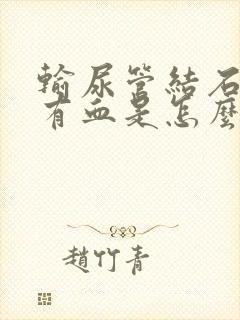 輸尿管結石
有血是怎麼
趙竹青